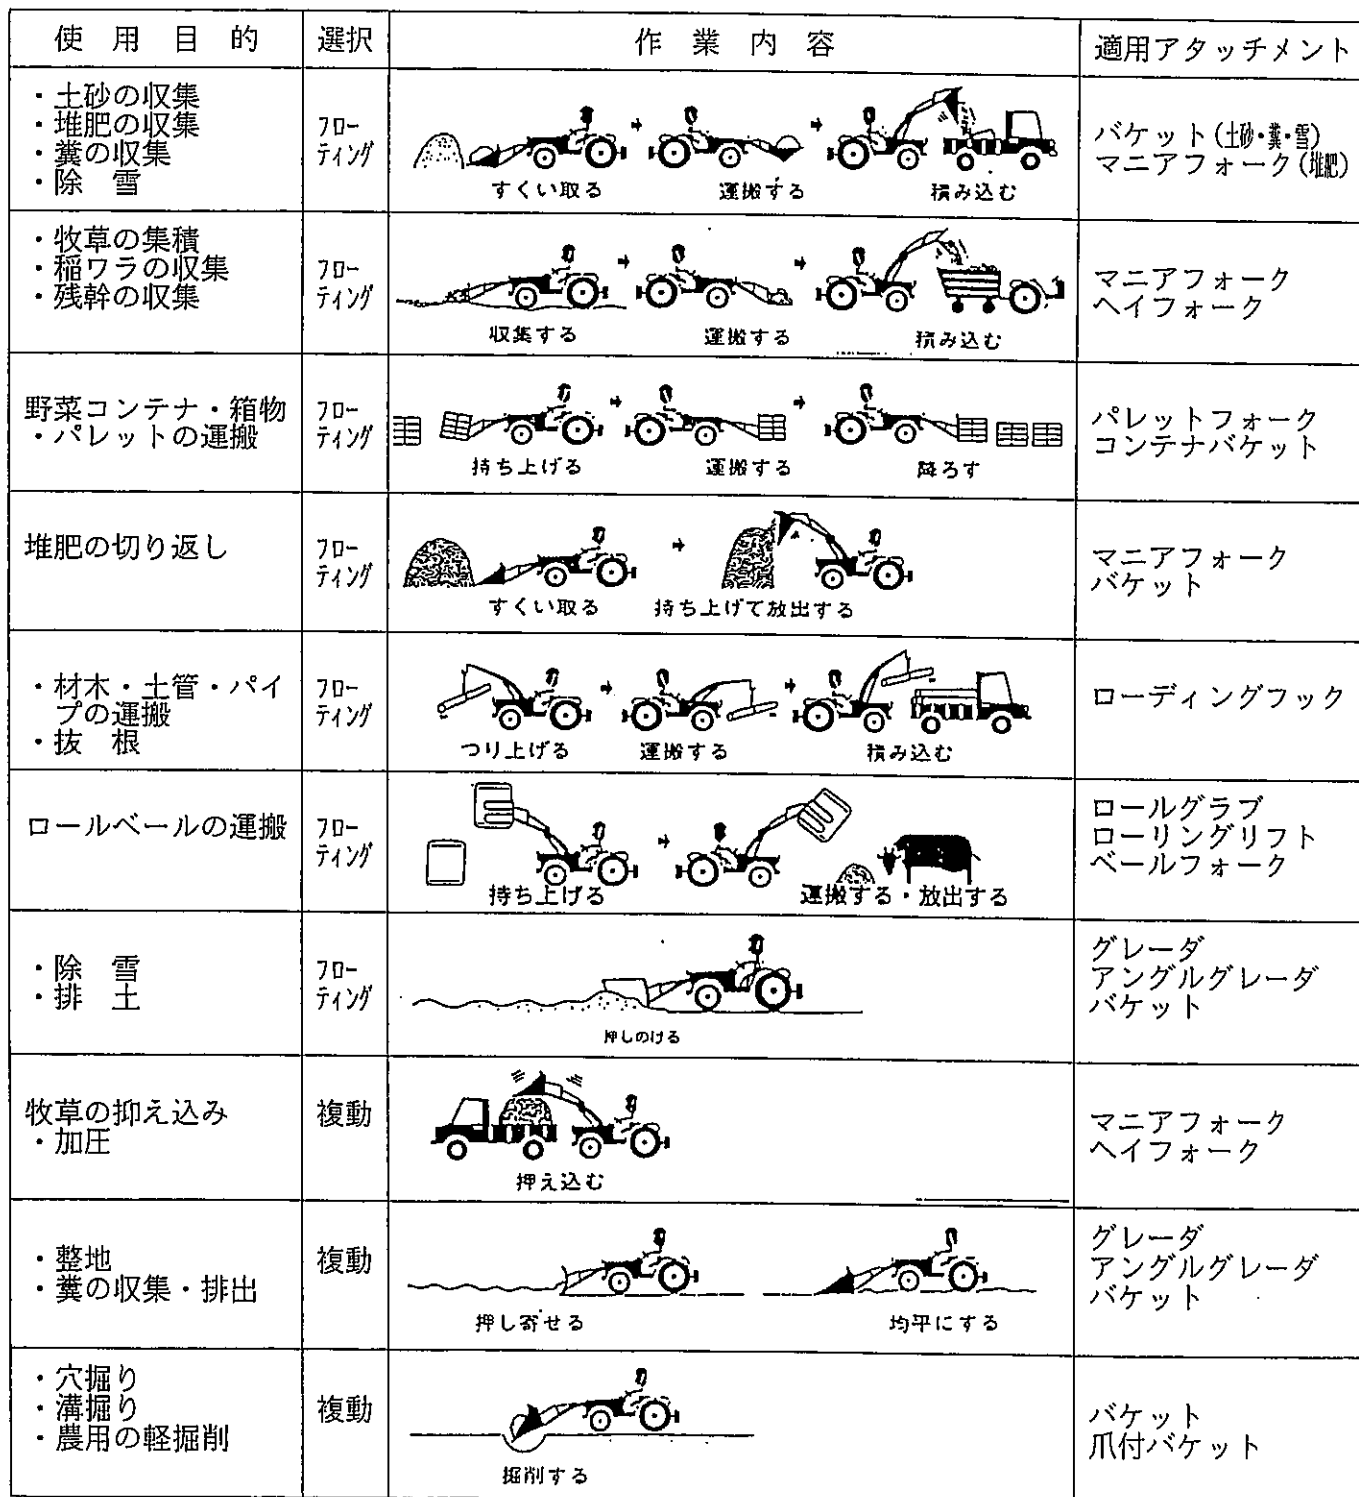 使用目的
選択
作業内容
適用アタッチメント
・土砂の収集
・堆肥の収集
・糞の収集
・除 雪
フロー
ティング
すくい取る
運搬する
積み込む
バケット(土砂・糞・雪)
マニアフォーク(堆肥)
・牧草の集積
・稲ワラの収集
・残幹の収集
フロー
ティング
収集する
運搬する
積み込む
マニアフォーク
ヘイフォーク
野菜コンテナ・箱物
・パレットの運搬
フロー
ティング
持ち上げる
運搬する
降ろす
パレットフォーク
コンテナバケット
堆肥の切り返し
フロー
ティング
すくい取る
持ち上げて放出する
マニアフォーク
バケット
・材木・土管・パイ
プの運搬
・抜 根
フロー
ティング
つり上げる
運搬する
積み込む
ローディングフック
ロールベールの運搬
フロー
ティング
持ち上げる
運搬する・放出する
ロールグラブ
ローリングリフト
ベールフォーク
・除 雪
・排 土
フロー
ティング
押しのける
グレーダ
アングルグレーダ
バケット
牧草の抑え込み
・加圧
複動
押え込む
マニアフォーク
ヘイフォーク
・整地
・糞の収集・排出
複動
押し寄せる
均平にする
グレーダ
アングルグレーダ
バケット
・穴掘り
・溝掘り
・農用の軽掘削
複動
掘削する
バケット
爪付バケット